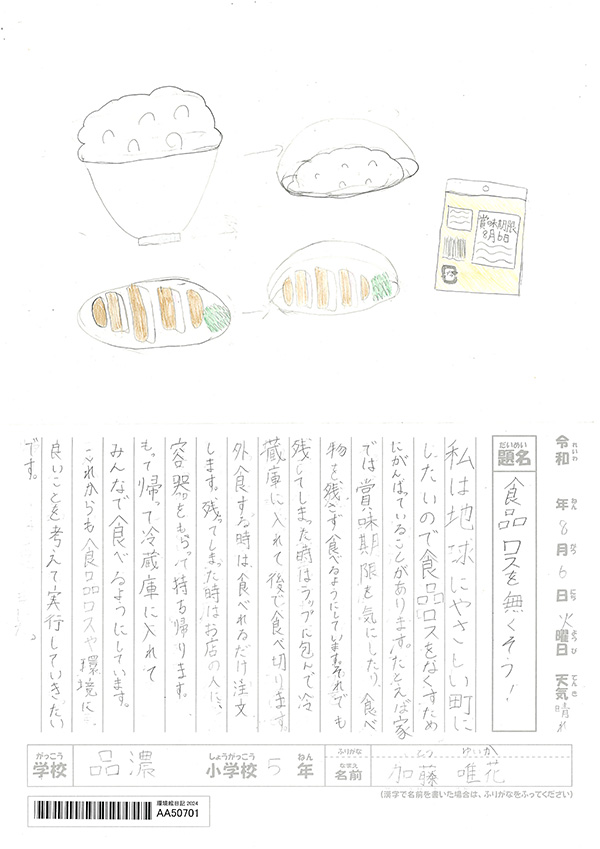 賞味期限
8月6日
令和 年8月6日火曜日 天気 晴れ
れいわ ねん がつ にち ようび てんき
だいめい
題名
食品ロスを無くそう!
私は地球にやさしい町に
したいので食品ロスをなくすため
にがんばっていることがあります。たとえば家
では賞味期限を気にしたり、食べ
物を残さず食べるようにしています。それでも
残してしまった時はラップに包んで冷
蔵庫に入れて後で食べ切ります。
外食する時は、食べれるだけ注文
します。残ってしまった時はお店の人に、
容器をもらって持ち帰ります。
もって帰って冷蔵庫に入れて
みんなで食べるようにしています。
これからも食品ロスや環境に
良いことを考えて実行していきたい
です。
がっこう
学校
品濃
しょうがっこう
小学校
5
ねん
年
ふりがな
なまえ
名前
ゆいか
加藤 唯花
(漢字で名前を書いた場合は、ふりがなをふってください)
環境絵日記2024
AA50701